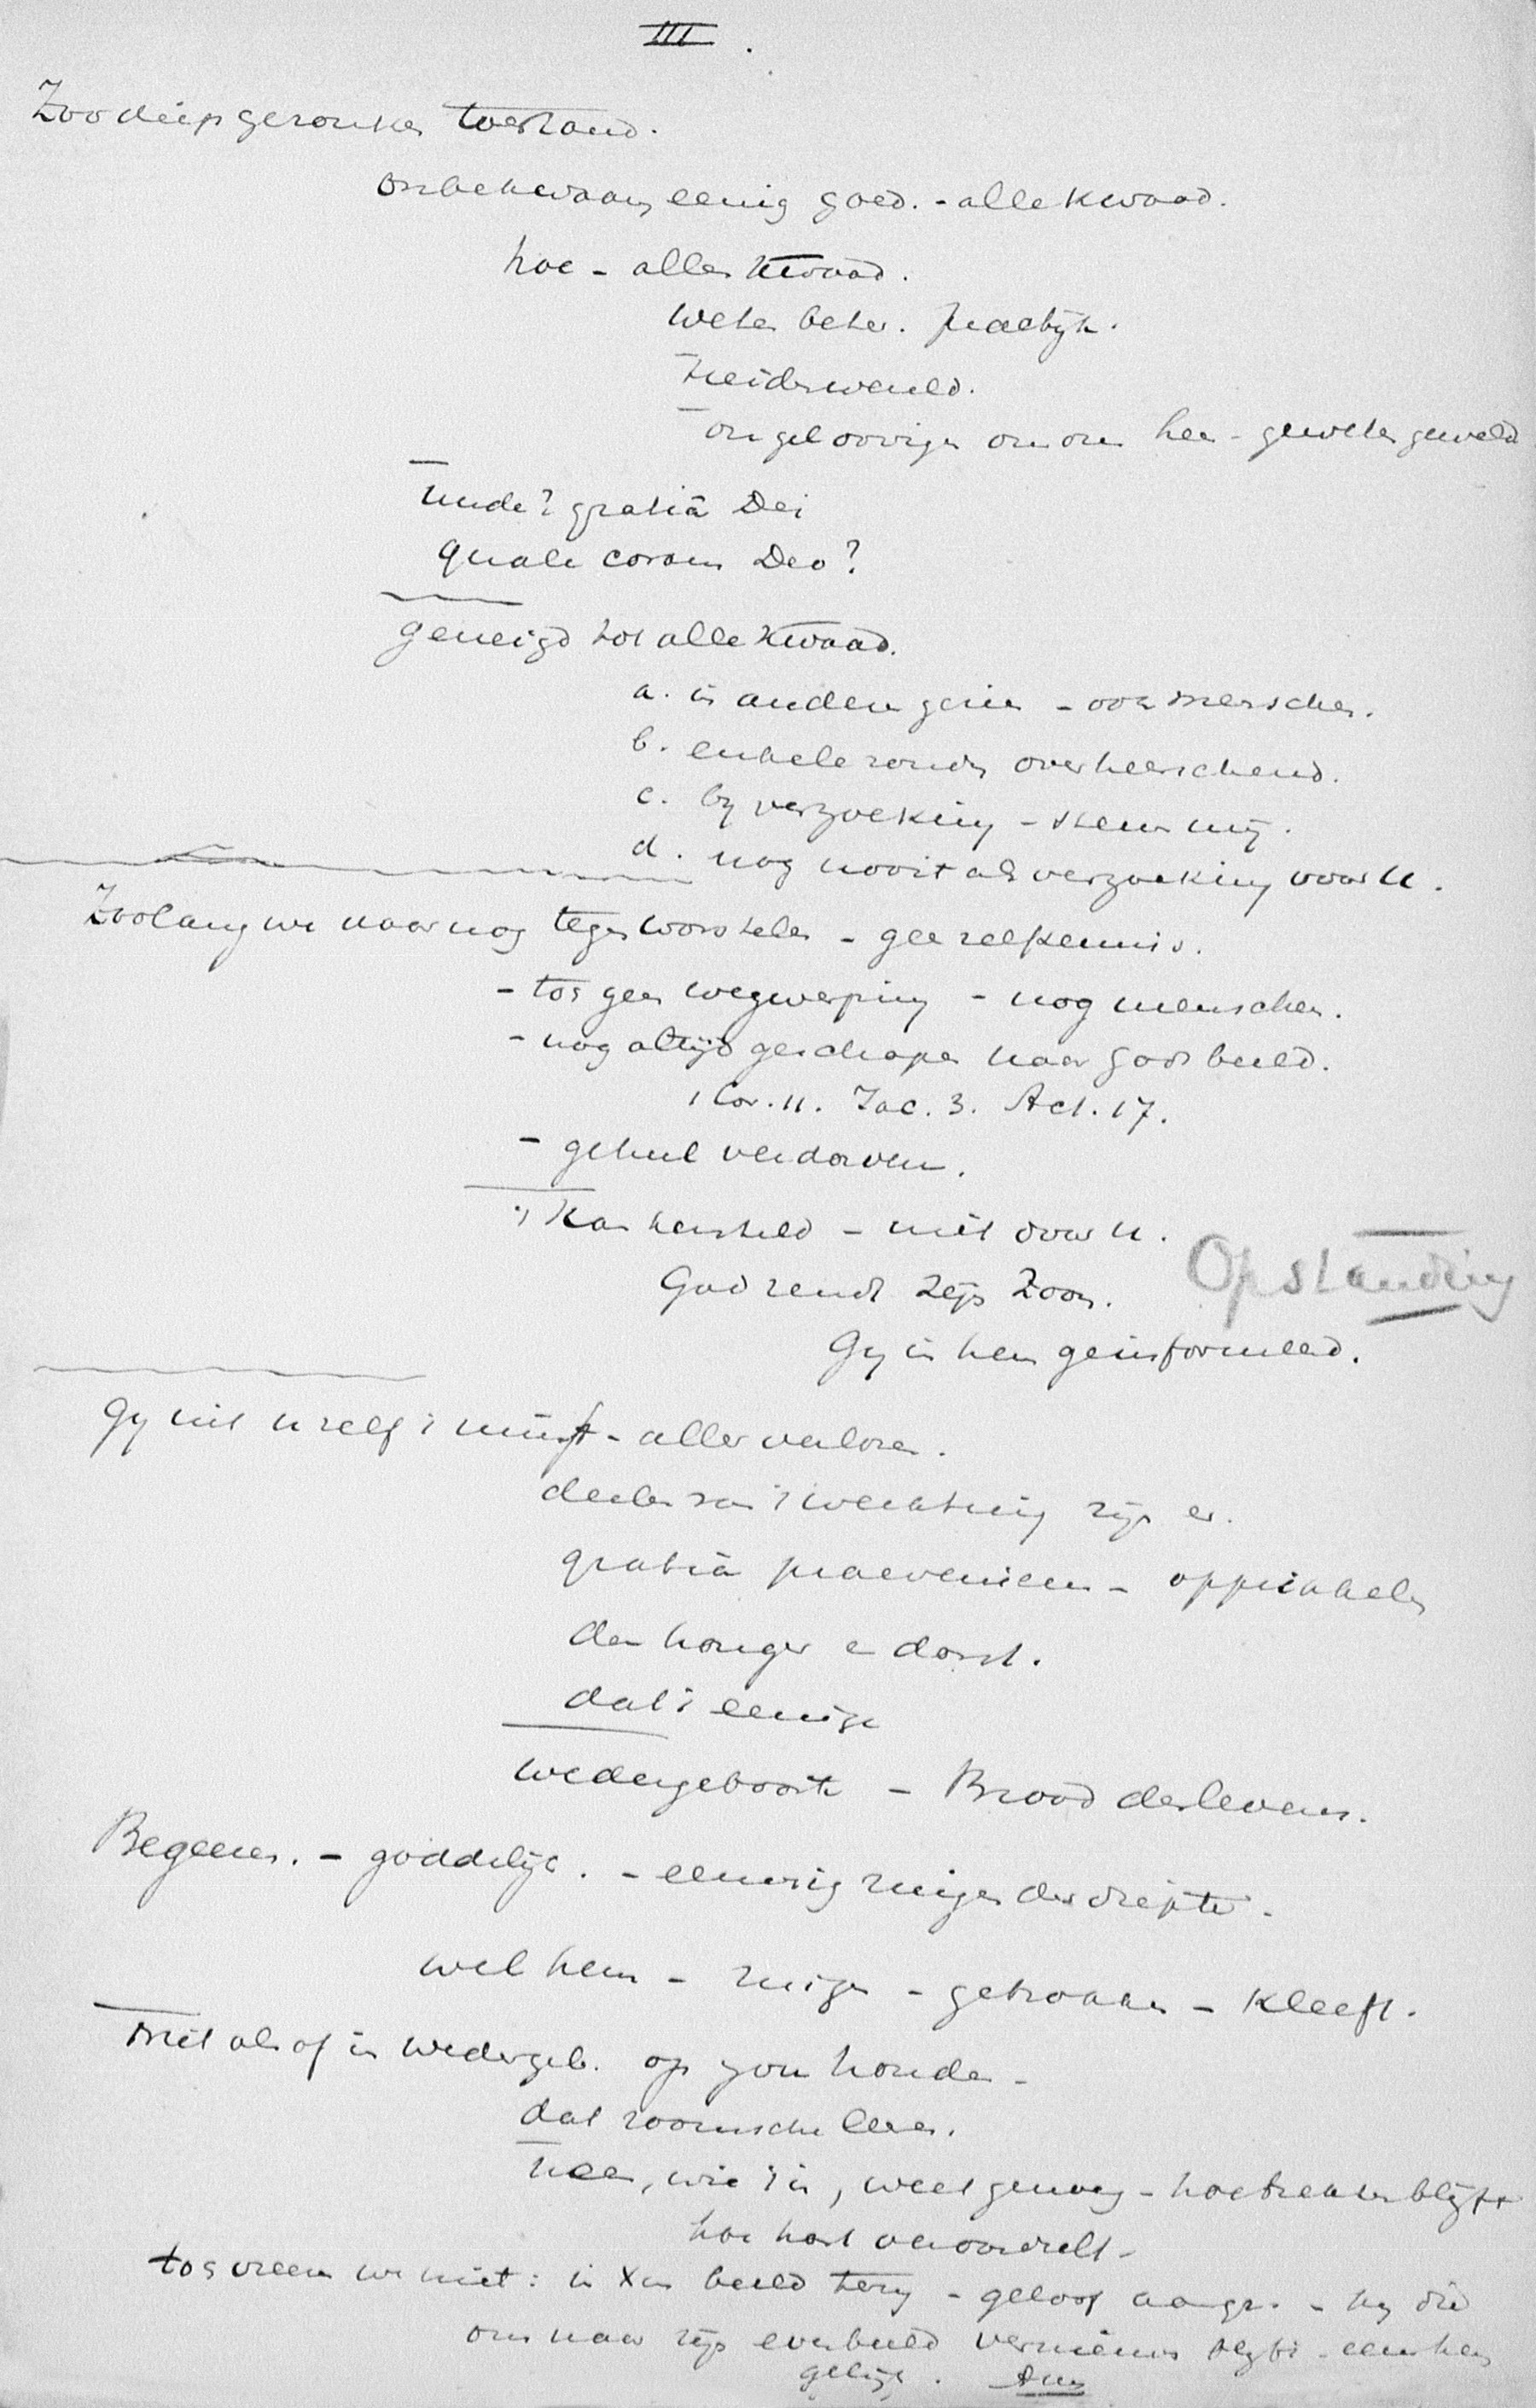 III.
Zoo diep gezonken toestand.
onbekwaam eenig goed. - alle kwaad.
hoe - alle kwaad.
weten beter. practijk.
Heidenwereld.
ongeloovigen om ons heen - geweten
unde? gratiâ Dei
quale coram Deo?
geneigd tot alle kwaad.
a. in anderen gezien - ook menschen.
b. enkele zonden overheerschend.
c. by verzoeking - stem
d. nog nooit als verzoeking voor u.
Zoolang we daar nog tegen worstelen - geen zelfkennis.
- tog geen wegwerping - nog menschen.
- nog altijd geschapen naar Gods beeld.
1 Cor. 11. Jac. 3. Act. 17.
- geheel verdorven.
kan hersteld - niet door u.
God zendt zijn Zoon.
Opstanding
Gy in hem
Gy uit u zelf - alles verloren.
zijn er.
gratia praeveniens - opprikkelen
den honger en dorst.
dat 't eenige
wedergeboorte - Brood des levens.
Begeeren. - goddelijk. - zuigen der diepte.
wel hem - zuigen - getrokken - kleeft.
Niet alsof in wedergeb. op zou houden -
dat roomsche leer.
Neen, wie 't is, weet genoeg - hoe blijft
hoe hart
tog vreezen we niet: in Xus beeld terug - geloof - hy die
ons naar zijn evenbeeld vernieuwt - eens hem
gelijk. Amen